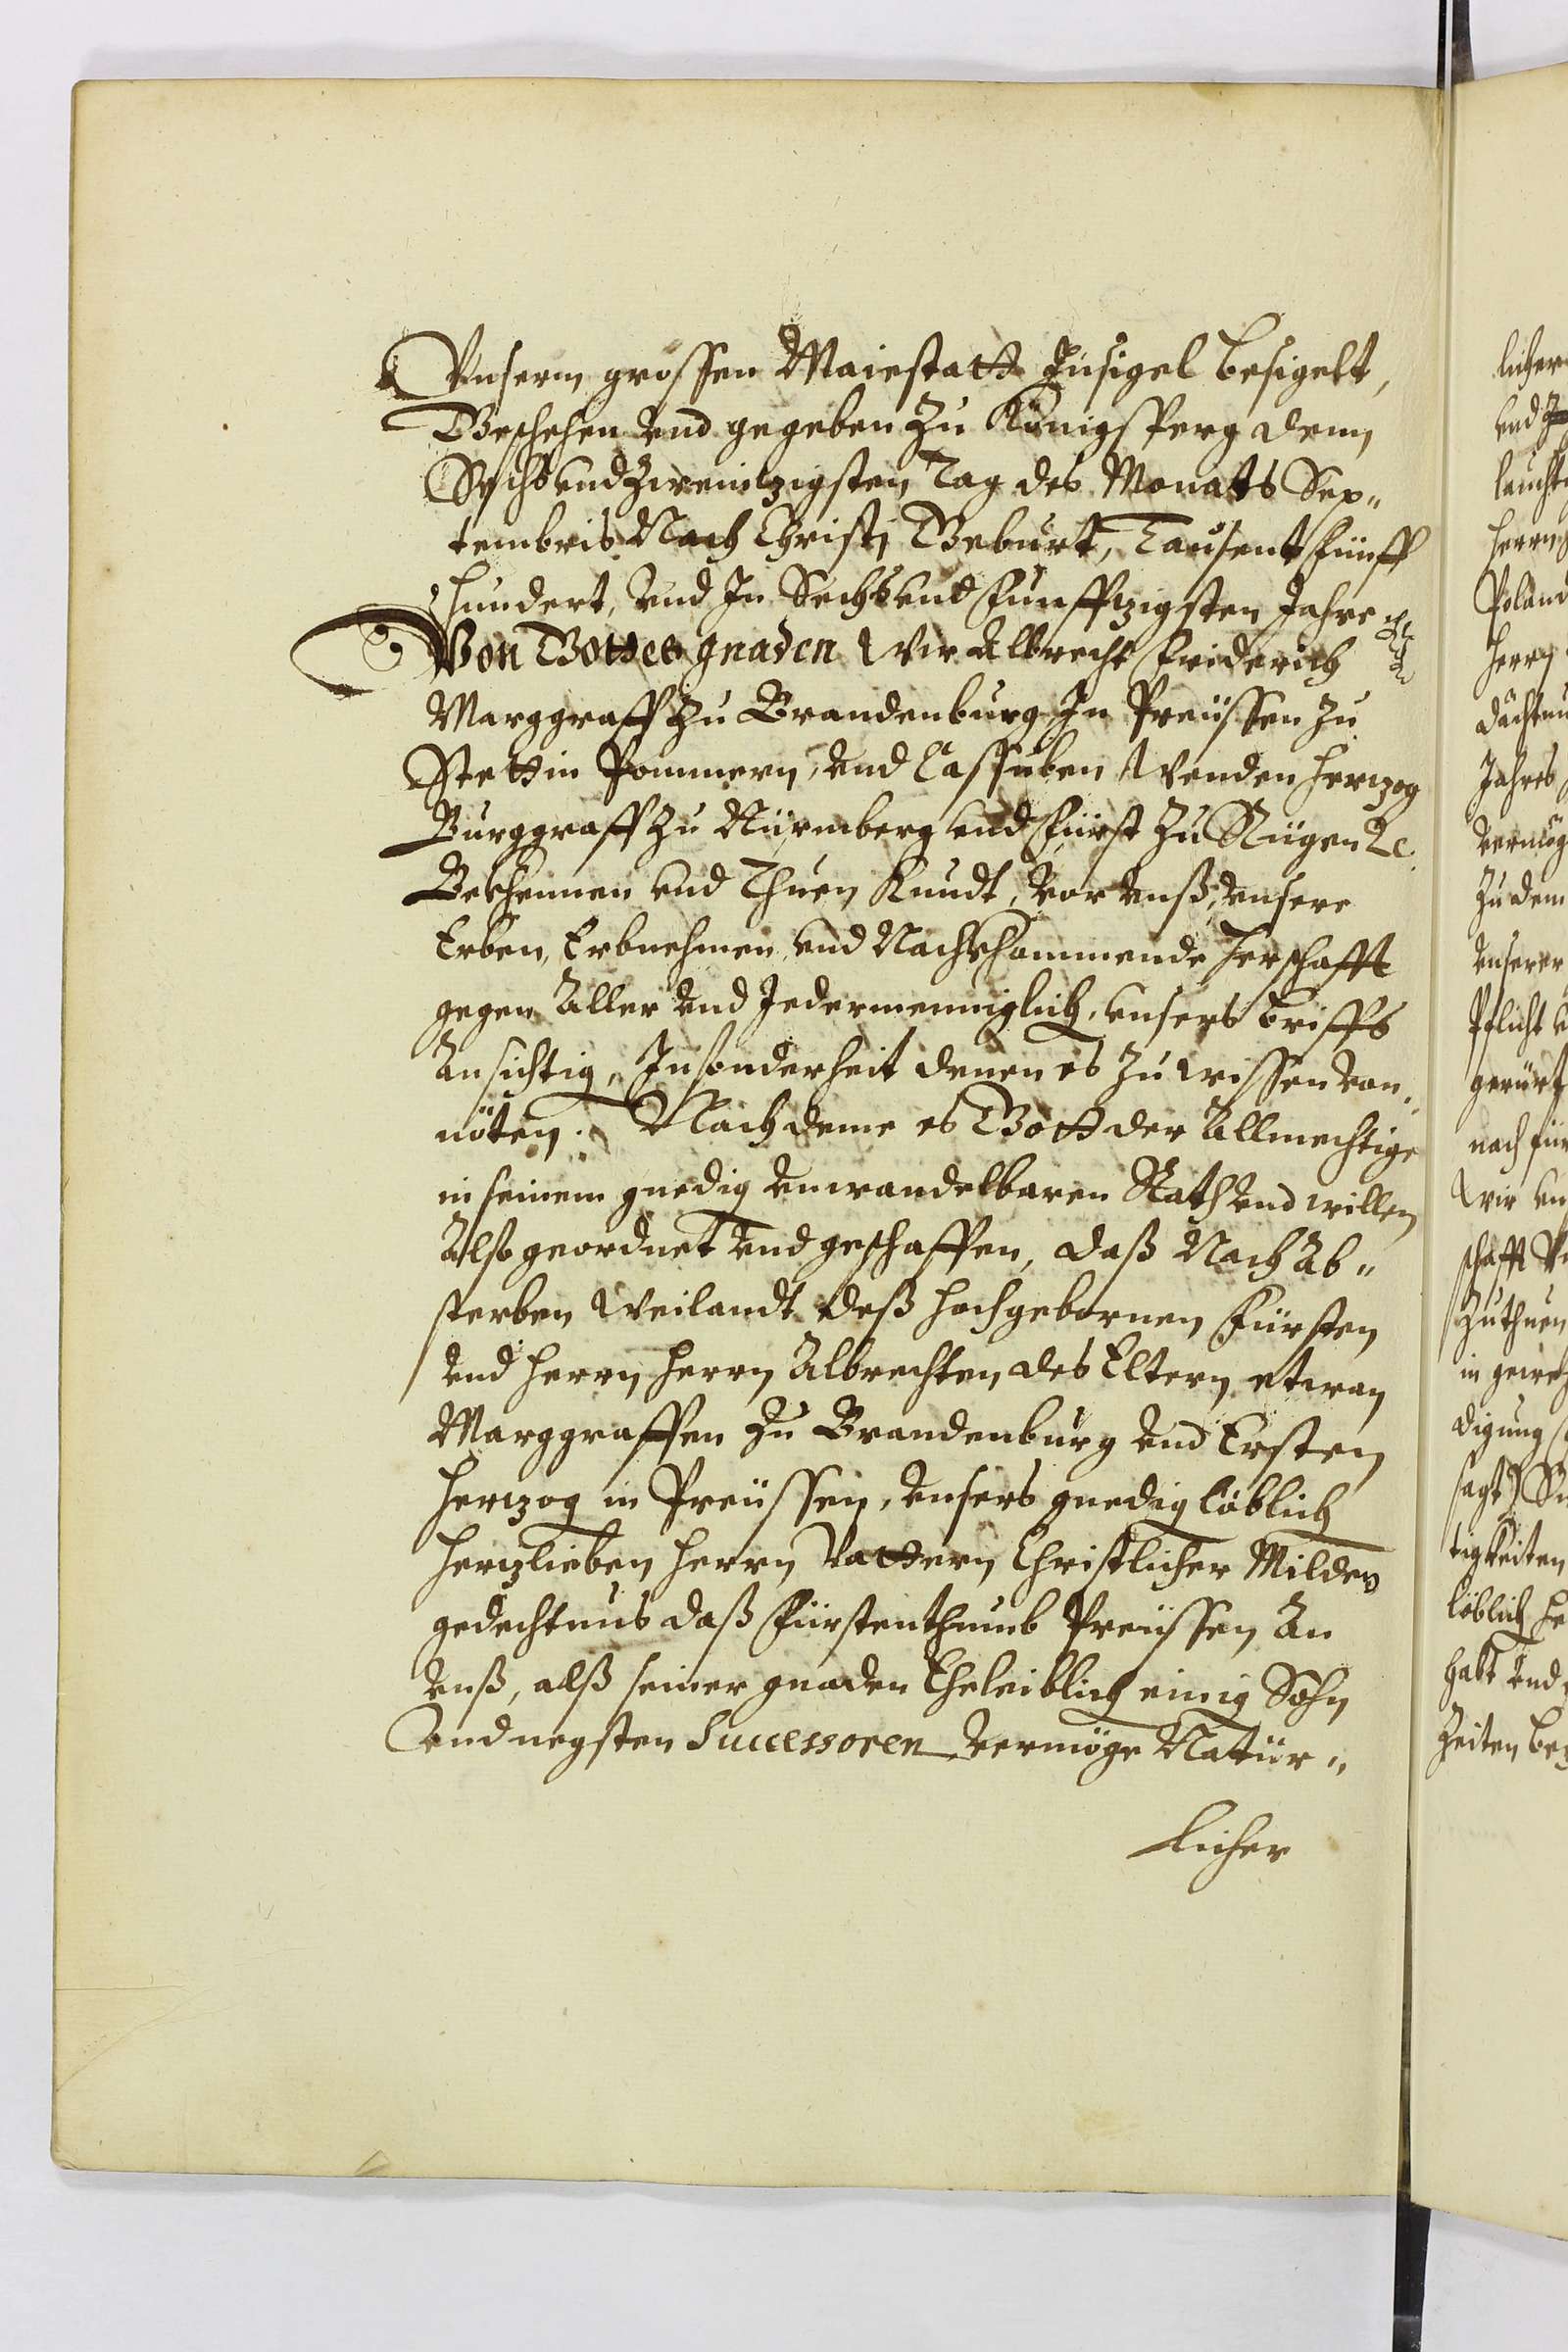 Vnserm grossen Maiestatt Insigel besigelt,
Geschehen vnd gegeben zu Königsperg denn
Sechs vnd zweintzigsten Tag des Monats Sep„
tembris Nach Christi Geburt, Tausent fünff
hundert, vnd In Sechs vnd fünfftzigsten Jahre
Von Gottes gnaden Wir Albrecht Friderich
Marggraff zu Brandenburg In Preüssen zu
Stettin Pommern, vnd Cassuben Wenden hertzog
Burggraff zu Nürmberg vnd Fürst zu Rügen &c.
Bekhennen vnd Thuen Kundt, vor vnß, vnsere
Erben, Erbnehmen, vnd Nachkhommende herschafft
gegen Aller vnd Jedermenniglich, vnsers brieffs
Ansichtig, Insonderheit denen es zu wissen von„
nöten. Nachdeme es Gott der Allmechtige
in seinem gnedig vnwandelbaren Rath vnd willen
Also geordnet vnd geschaffen, daß Nach Ab„
sterben Weilandt deß hochgebornen Fürsten
vnd herrn herrn Albrechten des Eltern etwan
Marggraffen zu Brandenburg vnd Ersten
hertzog in Preüssen, vnsers gnedig löblich
hertzlieben herrn Vattern Christlicher Milder
gedechtnus daß Fürstenthumb Preüssen An
vnß, alß seiner gnaden Eheleiblich einig Sohn
vnd negsten Successoren vermöge Natür„
licher
licher
vnd
herrn
herrn
Jahres
vermög
zu dem
vnserer
Pflicht
nach für
Wir
schafft
zuthuen
digung
sagt
tigkeiten
löblich he
habt vnd
Zeiten